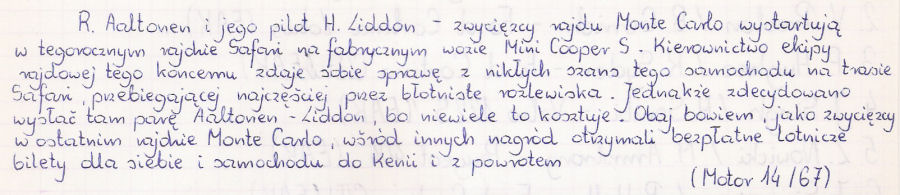 R. Aaltonen i jego pilot H. Liddon - zwycięzcy rajdu Monte Carlo wystartują
w tegorocznym rajdzie Safari na fabrycznym wozie Mini Cooper S. Kierownictwo ekipy
rajdowej tego koncernu zdaje sobie sprawę z nikłych szans tego samochodu na trasie
Safari, przebiegającej najczęściej przez błotniste rozlewiska. Jednakże zdecydowano
wysłać tam parę Aaltonen - Liddon, bo niewiele to kosztuje. Obaj bowiem, jako zwycięzcy
w ostatnim rajdzie Monte Carlo, wśród innych nagród otrzymali bezpłatne lotnicze
bilety dla siebie i samochodu do Kenii i z powrotem
(Motor 14/67)